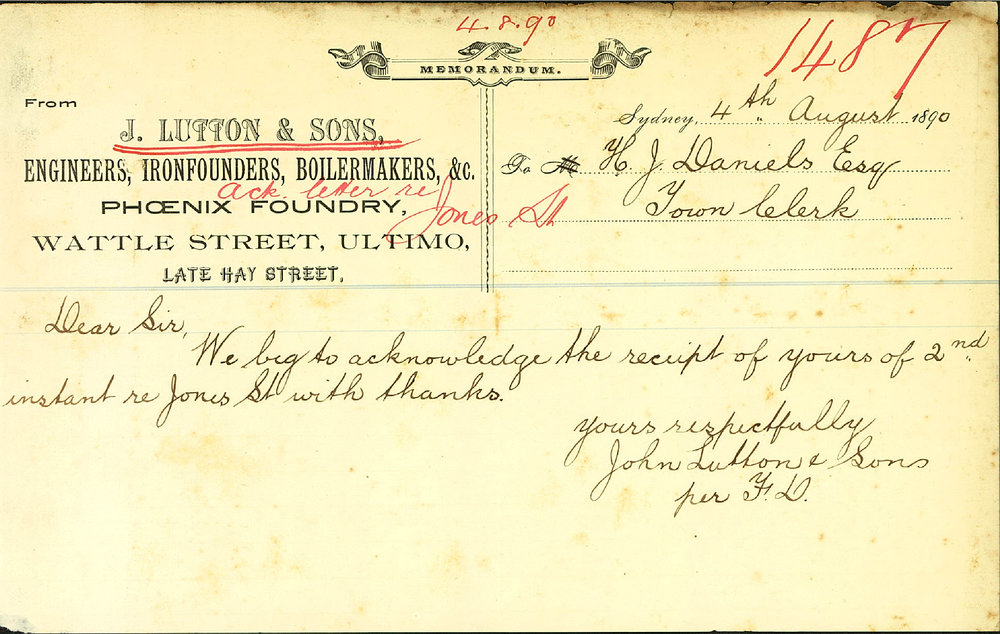 4.8.90
1487
MEMORANDUM.
From
J. LUTTON & SONS,
ENGINEERS, IRONFOUNDERS, BOILERMAKERS, &c.
ack letter re Jones St
PHŒNIX FOUNDRY,
WATTLE STREET, ULTIMO,
LATE HAY STREET.
Sydney, 4th August 1890
To M H. J. Daniels Esq
Town Clerk
Dear Sir,
We beg to acknowledge the receipt of yours of 2nd
instant re Jones St with thanks.
yours respectfully
John Lutton & Sons
per F. D.